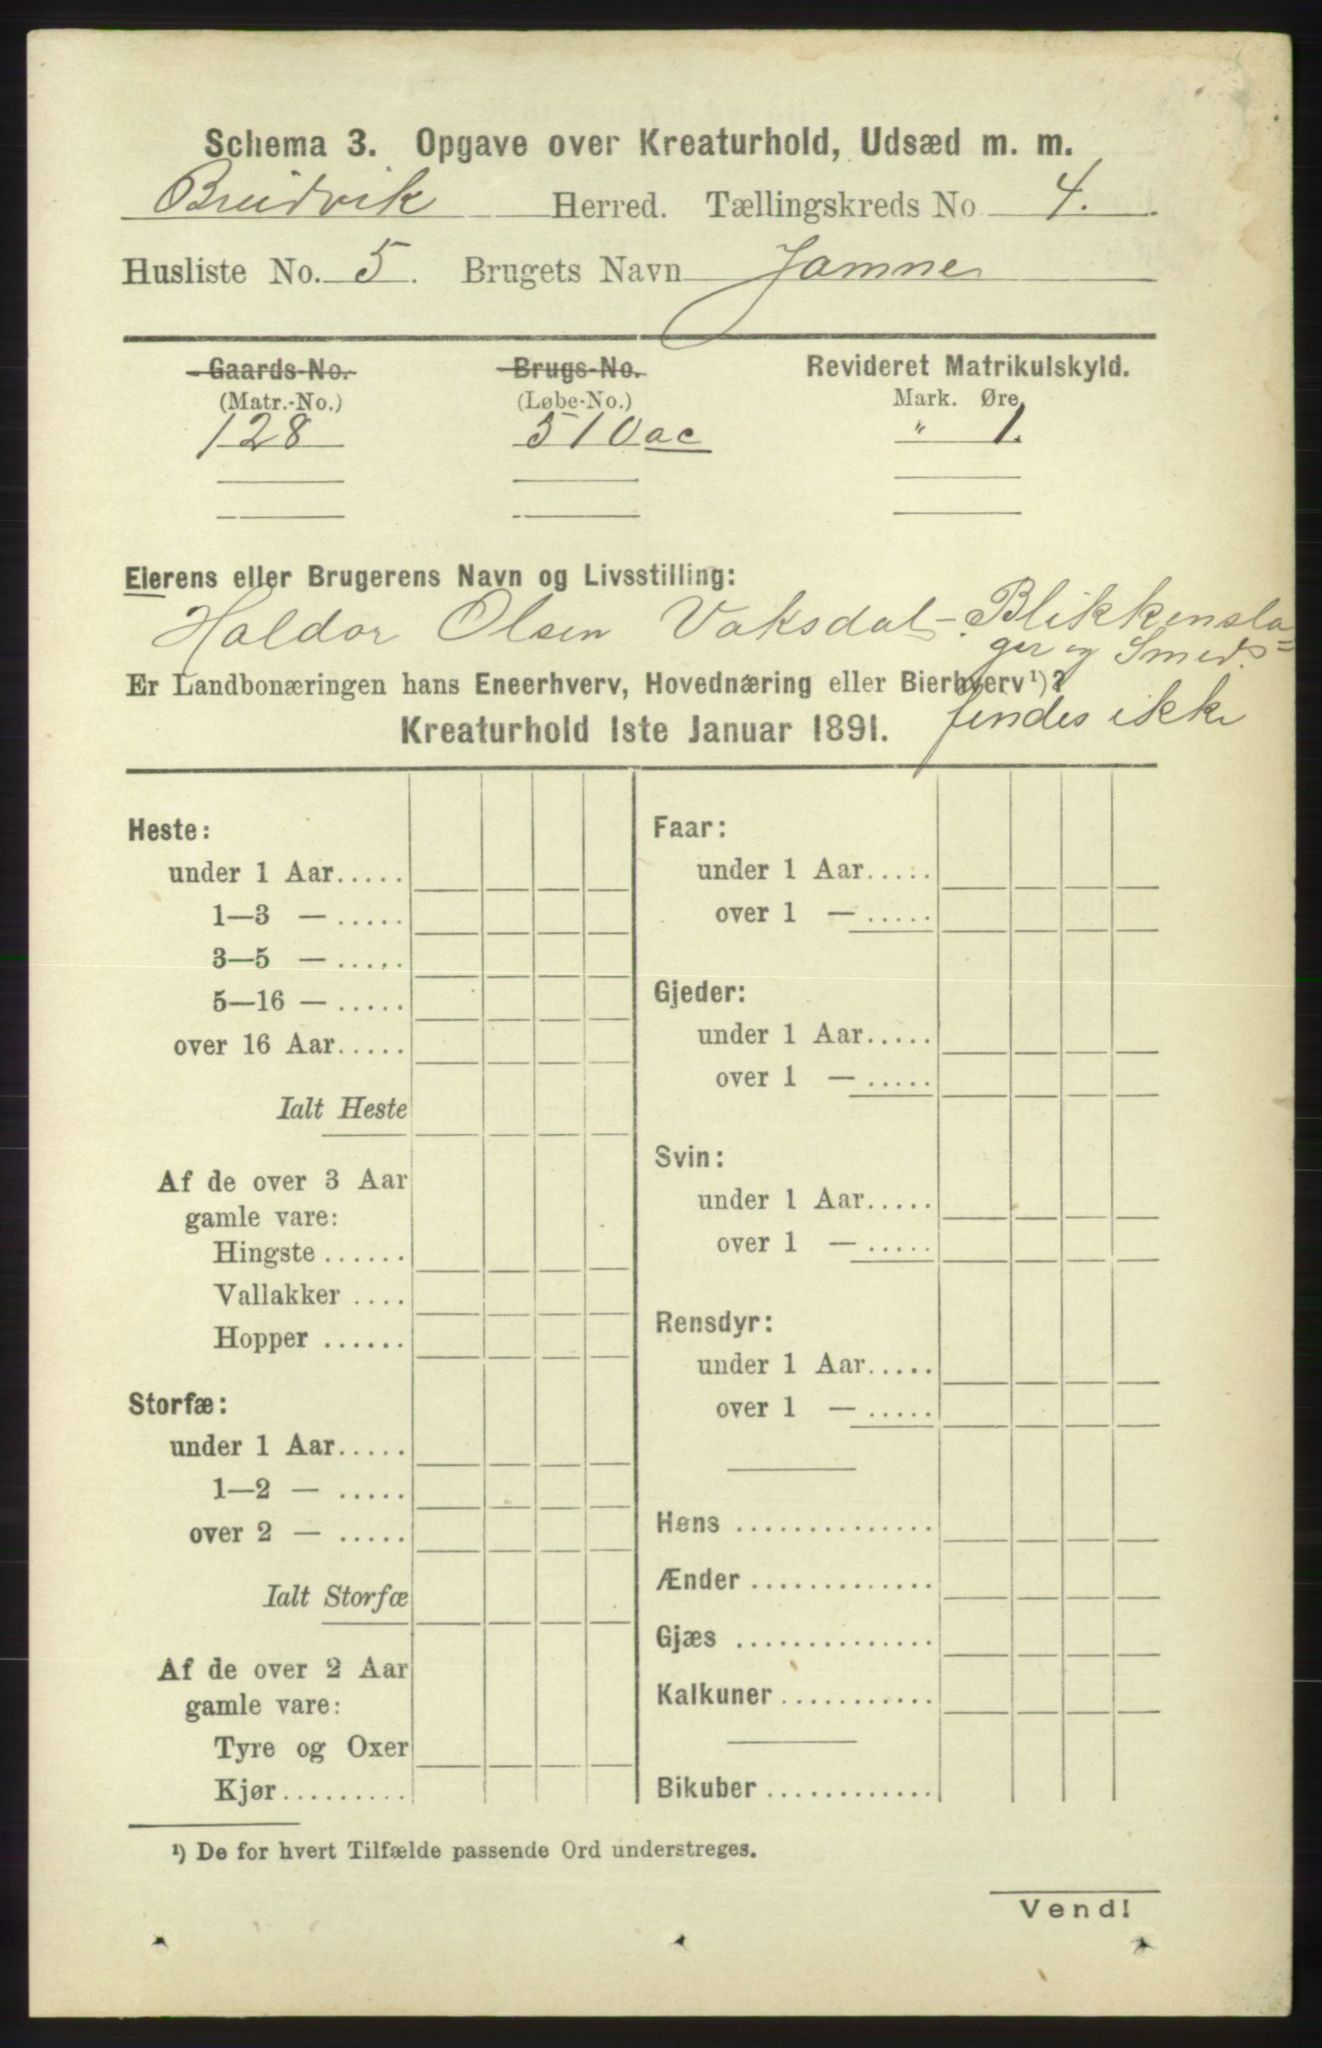 Schema 3. Opgave over Kreaturhold, Udsæd m. m.
Bruidvik Herred. Tællingskreds No 4.
Husliste No. 5. Brugets Navn Jamne
Gaards-No. Brugs-No. Revideret Matrikulskyld.
(Matr.-No.) (Løbe-No.) Mark. Øre.
128 510ac " 1.
Eierens eller Brugerens Navn og Livsstilling:
Haldor Olsen Vaksdal - Blikkensla=
ger og Smed.
Er Landbonæringen hans Eneerhverv, Hovednæring eller Bierhverv¹)?
findes ikke
Kreaturhold 1ste Januar 1891.
Heste:
under 1 Aar.....
1—3 — .....
3—5 — .....
5—16 — .....
over 16 Aar.....
Ialt Heste
Af de over 3 Aar
gamle vare:
Hingste ......
Vallakker ....
Hopper ......
Storfæ:
under 1 Aar.....
1—2 — .....
over 2 — .....
Ialt Storfæ
Af de over 2 Aar
gamle vare:
Tyre og Oxer
Kjør.........
Faar:
under 1 Aar.....
over 1 — .....
Gjeder:
under 1 Aar.....
over 1 — .....
Svin:
under 1 Aar.....
over 1 — .....
Rensdyr:
under 1 Aar.....
over 1 — .....
Høns ..............
Ænder .............
Gjæs ..............
Kalkuner...........
Bikuber ............
¹) De for hvert Tilfælde passende Ord understreges.
Vend!